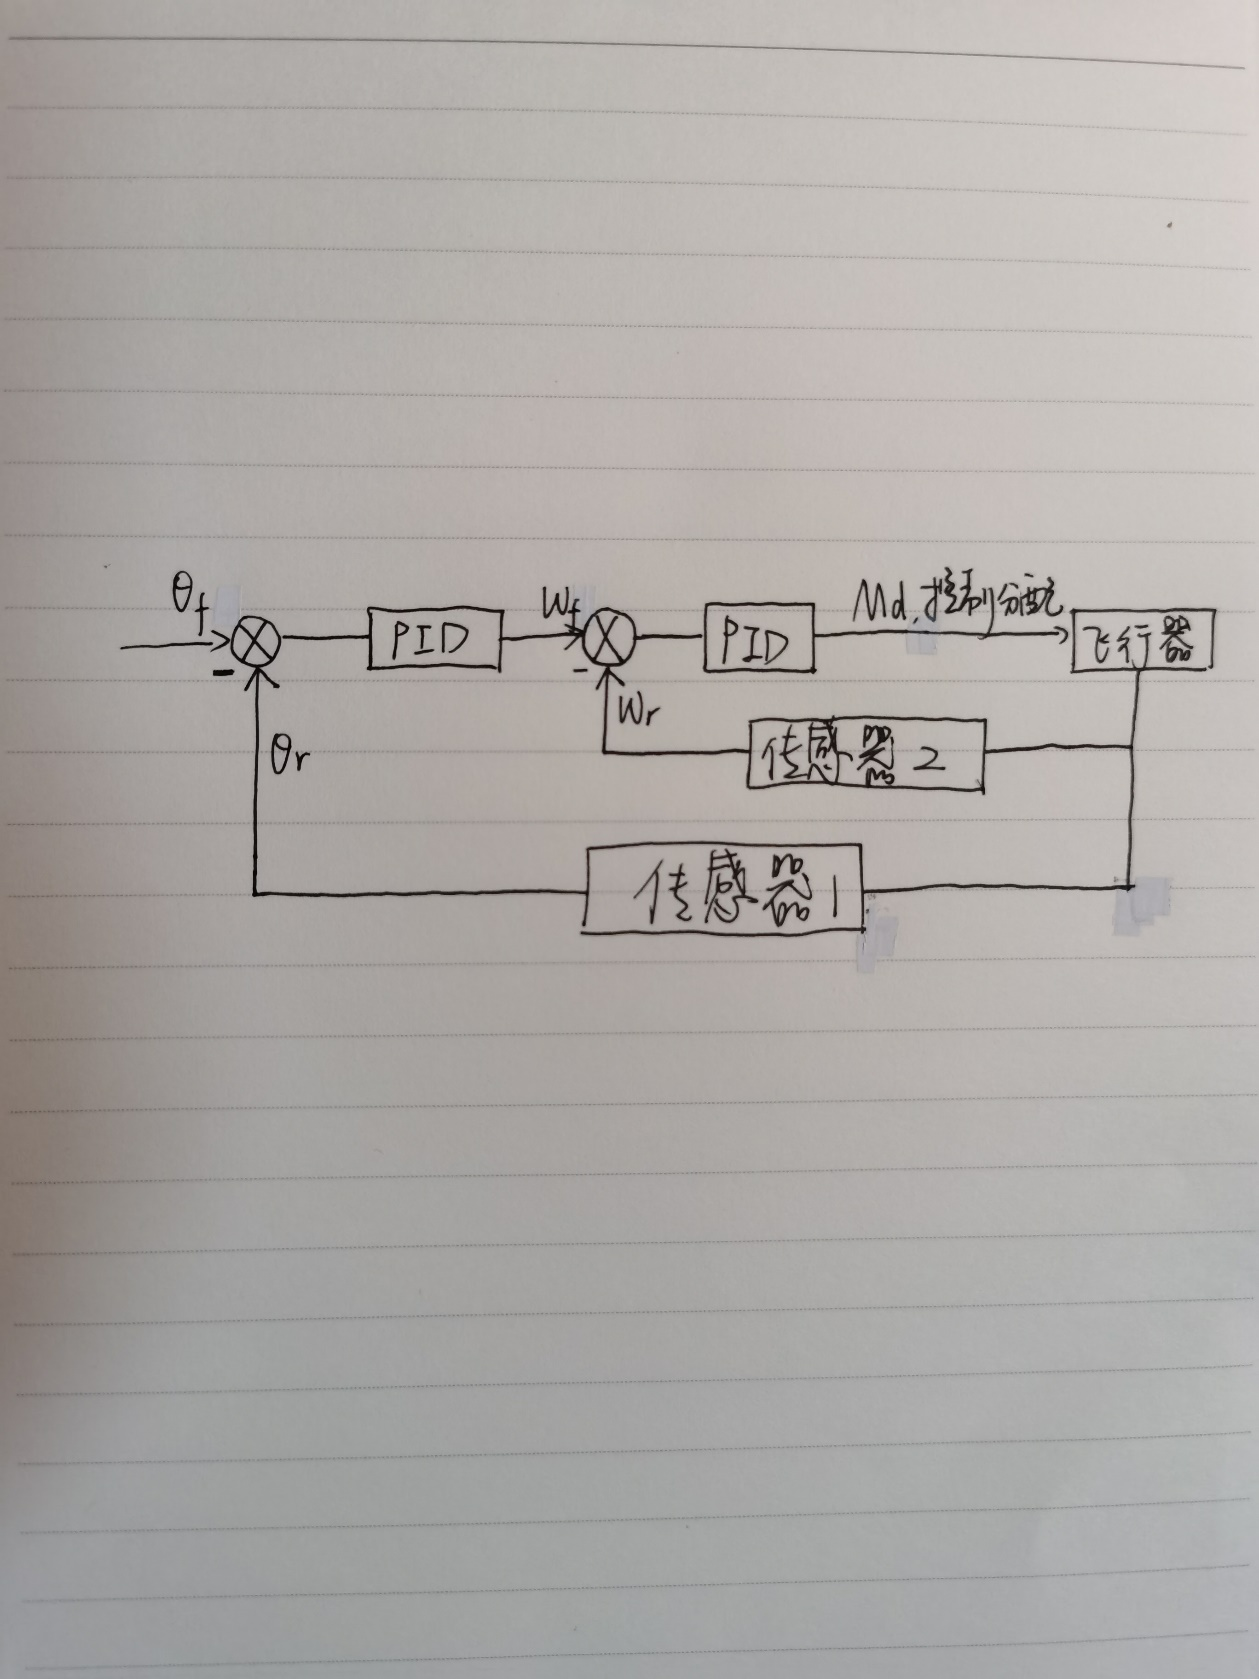 θf
PID
Wf
PID
Md.控制分配
飞行器
-
-
Wr
θr
传感器2
传感器1